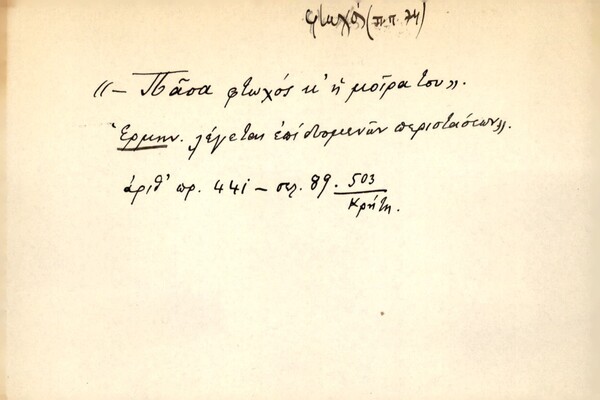 φτωχός (π.π. 74)
«— Πᾶσα φτωχός κ' ἡ μοῖρα του».
Ἑρμην. λέγεται ἐπί περιστάσεων».
ἀριθ' πρ. 441 — σελ. 89. 503
Κρήτη.